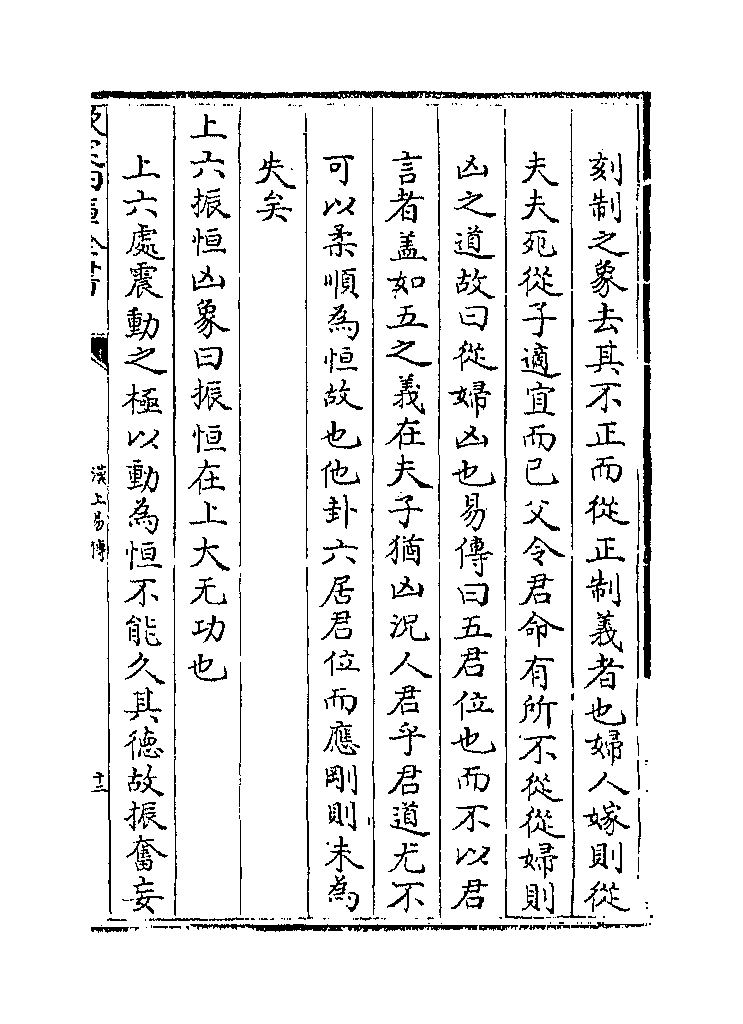 刻制之象去其不正而從正制義者也婦人嫁則從
夫夫死從子適宜而已父令君命有所不從從婦則
凶之道故曰從婦凶也易傳曰五君位也而不以君
言者盖如五之義在夫子猶凶況人君乎君道尤不
可以柔順為恒故也他卦六居君位而應剛則未為
失矣
上六振恒凶象曰振恒在上大无功也
上六處震動之極以動為恒不能久其徳故振奮妄
漢上易傳
十三